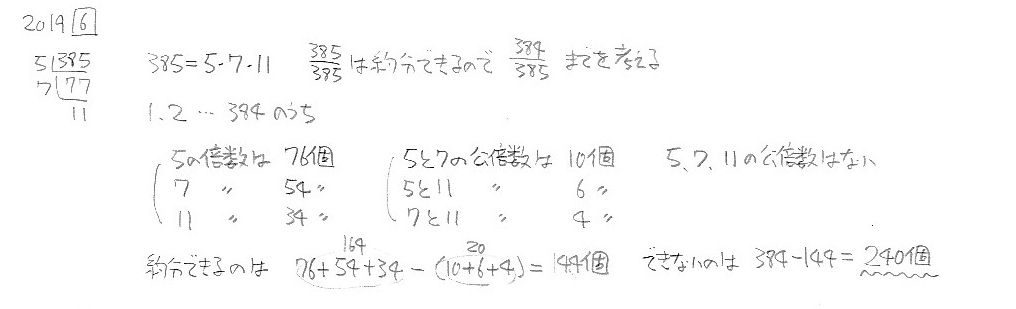 2019 6
5)385 385=5・7・11 385/385は約分できるので 384/385 までを考える
7)77
11 1.2 … 384 のうち
5の倍数は 76個 5と7の公倍数は 10個 5、7、11の公倍数はない
7 〃 54〃 5と11 〃 6〃
11 〃 34〃 7と11 〃 4〃
164 20
約分できるのは 76+54+34-(10+6+4)=144個 できないのは 384-144=240個